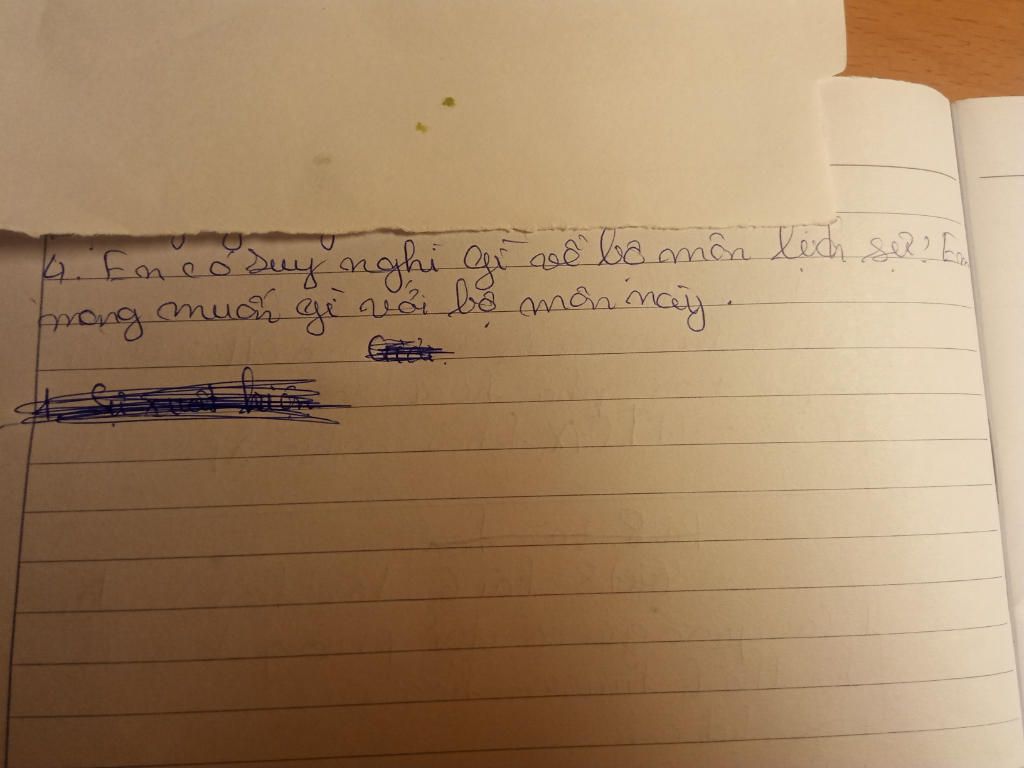 4. Em có suy nghĩ gì về bộ môn lịch sử? Em
mong muốn gì với bộ môn này.